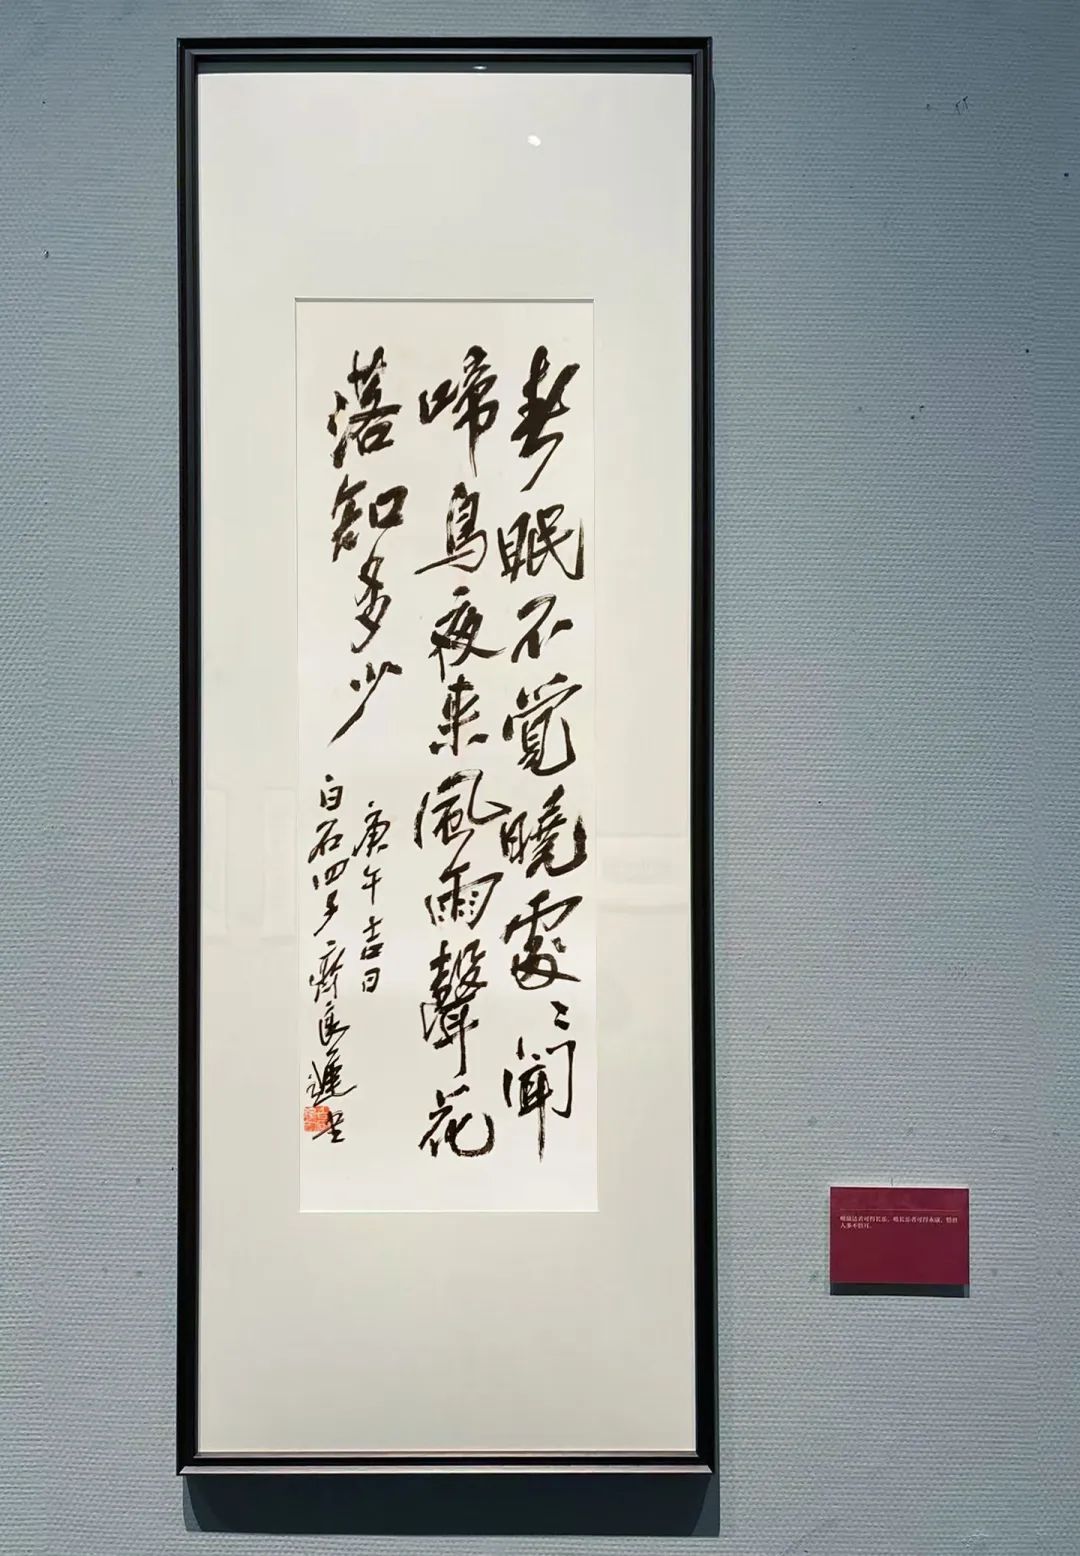 春眠不覺曉處〻聞
啼鳥夜来風雨聲花
落知多少
庚午吉日
白石四子齊良遲書
人多不悟耳。